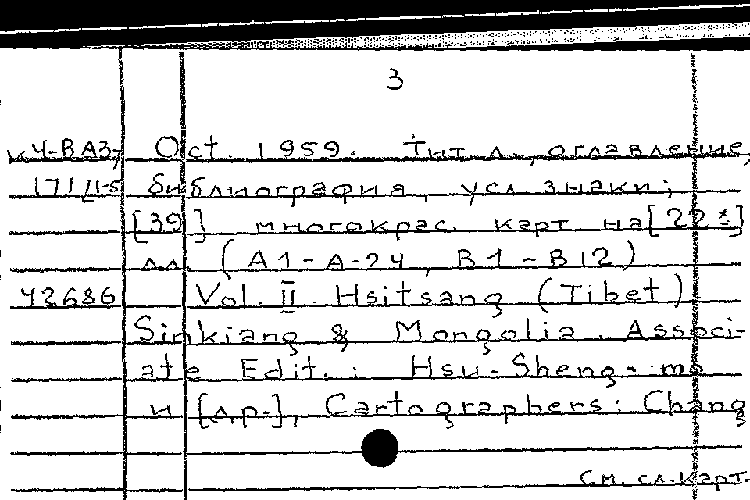 3
к4-ВАЗ, Oct. 1959. Тит. л., оглавление,
171/1-5 библиография, усл. знаки;
[39] многокрас. карт на [22 л]
лл. (A1-A-24, B1-B12)
42686 Vol. II. Hsitsang (Tibet)
Sinkiang & Mongolia. Associ-
ate Edit.: Hsu-Sheng-mo
и [др.], Cartographers: Chang
См. сл. карт.